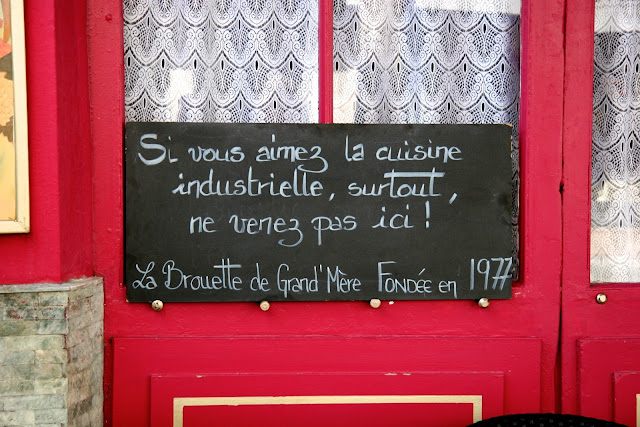 Si vous aimez la cuisine
industrielle, surtout,
ne venez pas ici !
La Brouette de Grand'Mère Fondée en 1977